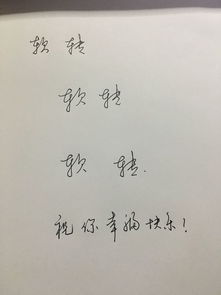 软 转
软 转
软 转.
祝你幸福快乐！